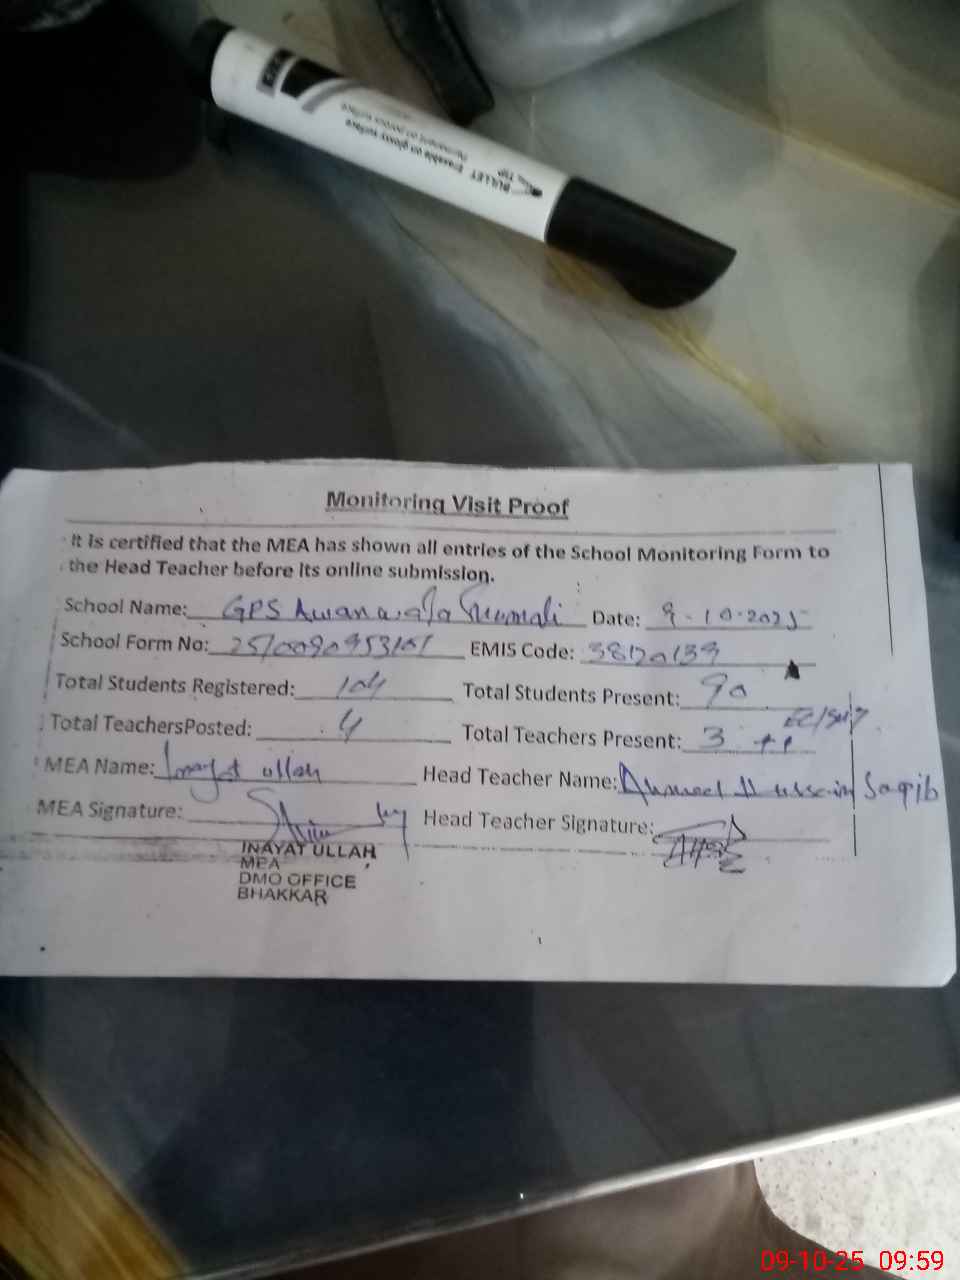 BULLET TIP
Erasable on glossy surface
Permanent on porous surface
Monitoring Visit Proof
It is certified that the MEA has shown all entries of the School Monitoring Form to
the Head Teacher before its online submission.
School Name: GPS Date: 9-10-2025
School Form No: EMIS Code: 38120139
Total Students Registered: 104 Total Students Present: 90
Total TeachersPosted: 4 Total Teachers Present: 3
MEA Name: Inayat ullah Head Teacher Name: Ahmed Hussain Saqib
MEA Signature: Head Teacher Signature:
INAYAT ULLAH
MEA
DMO OFFICE
BHAKKAR
09-10-25 09:59